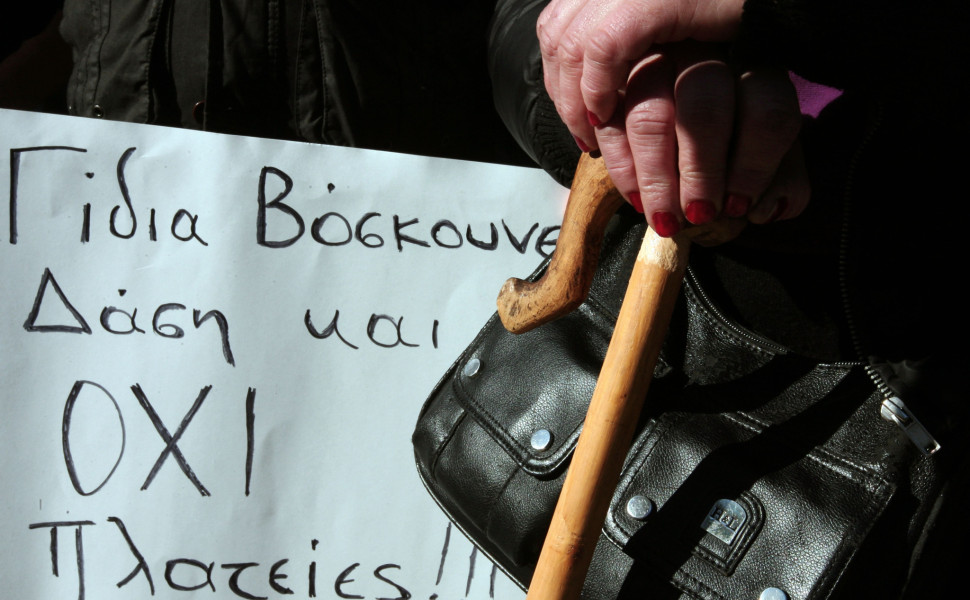 Γίδια Βόσκουνε
Δάση και
ΟΧΙ
Πλατείες!!!